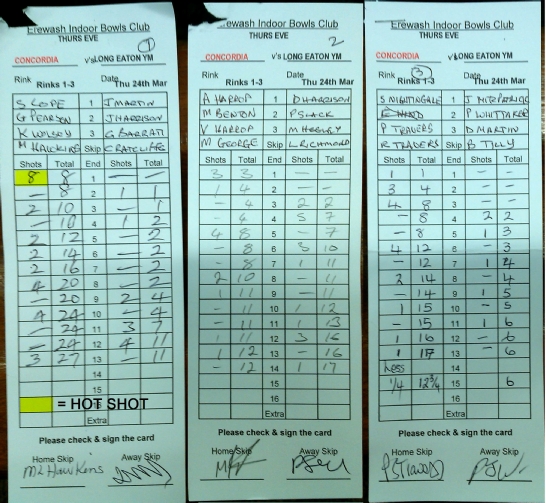 Erewash Indoor Bowls Club
THURS EVE
1
CONCORDIA v's LONG EATON YM
Rink Date
Rinks 1-3 Thu 24th Mar
S COPE 1 J MARTIN
G PEARSON 2 J HARRISON
K WILSON 3 G BARRATT
M HAWKINS Skip C RATCLIFFE
Shots Total End Shots Total
8 8 1 — —
— 8 2 1 1
2 10 3 — 1
— 10 4 1 2
2 12 5 — 2
2 14 6 — 2
2 16 7 — 2
4 20 8 — 2
— 20 9 2 4
4 24 10 — 4
— 24 11 3 7
— 24 12 4 11
3 27 13 — 11
14
15
= HOT SHOT
Extra
Please check & sign the card
Home Skip Away Skip
ML Hawkins
Erewash Indoor Bowls Club
THURS EVE
2
CONCORDIA v's LONG EATON YM
Rink Date
Rinks 1-3 Thu 24th Mar
A HARROP 1 D HARRISON
M BENTON 2 P SLACK
V HARROP 3
M GEORGE Skip L RICHMOND
Shots Total End Shots Total
3 3 1 — —
1 4 2 — —
— 4 3 2 2
— 4 4 5 7
4 8 5 — 7
— 8 6 3 10
— 8 7 1 11
2 10 8 — 11
1 11 9 — 11
— 11 10 1 12
— 11 11 1 13
— 11 12 3 16
1 12 13 — 16
— 12 14 1 17
15
16
Extra
Please check & sign the card
Home Skip Away Skip
Erewash Indoor Bowls Club
THURS EVE
CONCORDIA v's LONG EATON YM
3
Rink Date
Rinks 1-3 Thu 24th Mar
S NIGHTINGALE 1 J FITZPATRICK
2 P WHITTAKER
P TRAVERS 3 D MARTIN
R TRADERS Skip B TILLY
Shots Total End Shots Total
1 1 1 — —
3 4 2 — —
4 8 3 — —
— 8 4 2 2
— 8 5 1 3
4 12 6 — 3
— 12 7 1 4
2 14 8 — 4
— 14 9 1 5
1 15 10 — 5
— 15 11 1 6
1 16 12 — 6
1 17 13 — 6
Less 14
1/4 12 3/4 15 6
16
Extra
Please check & sign the card
Home Skip Away Skip